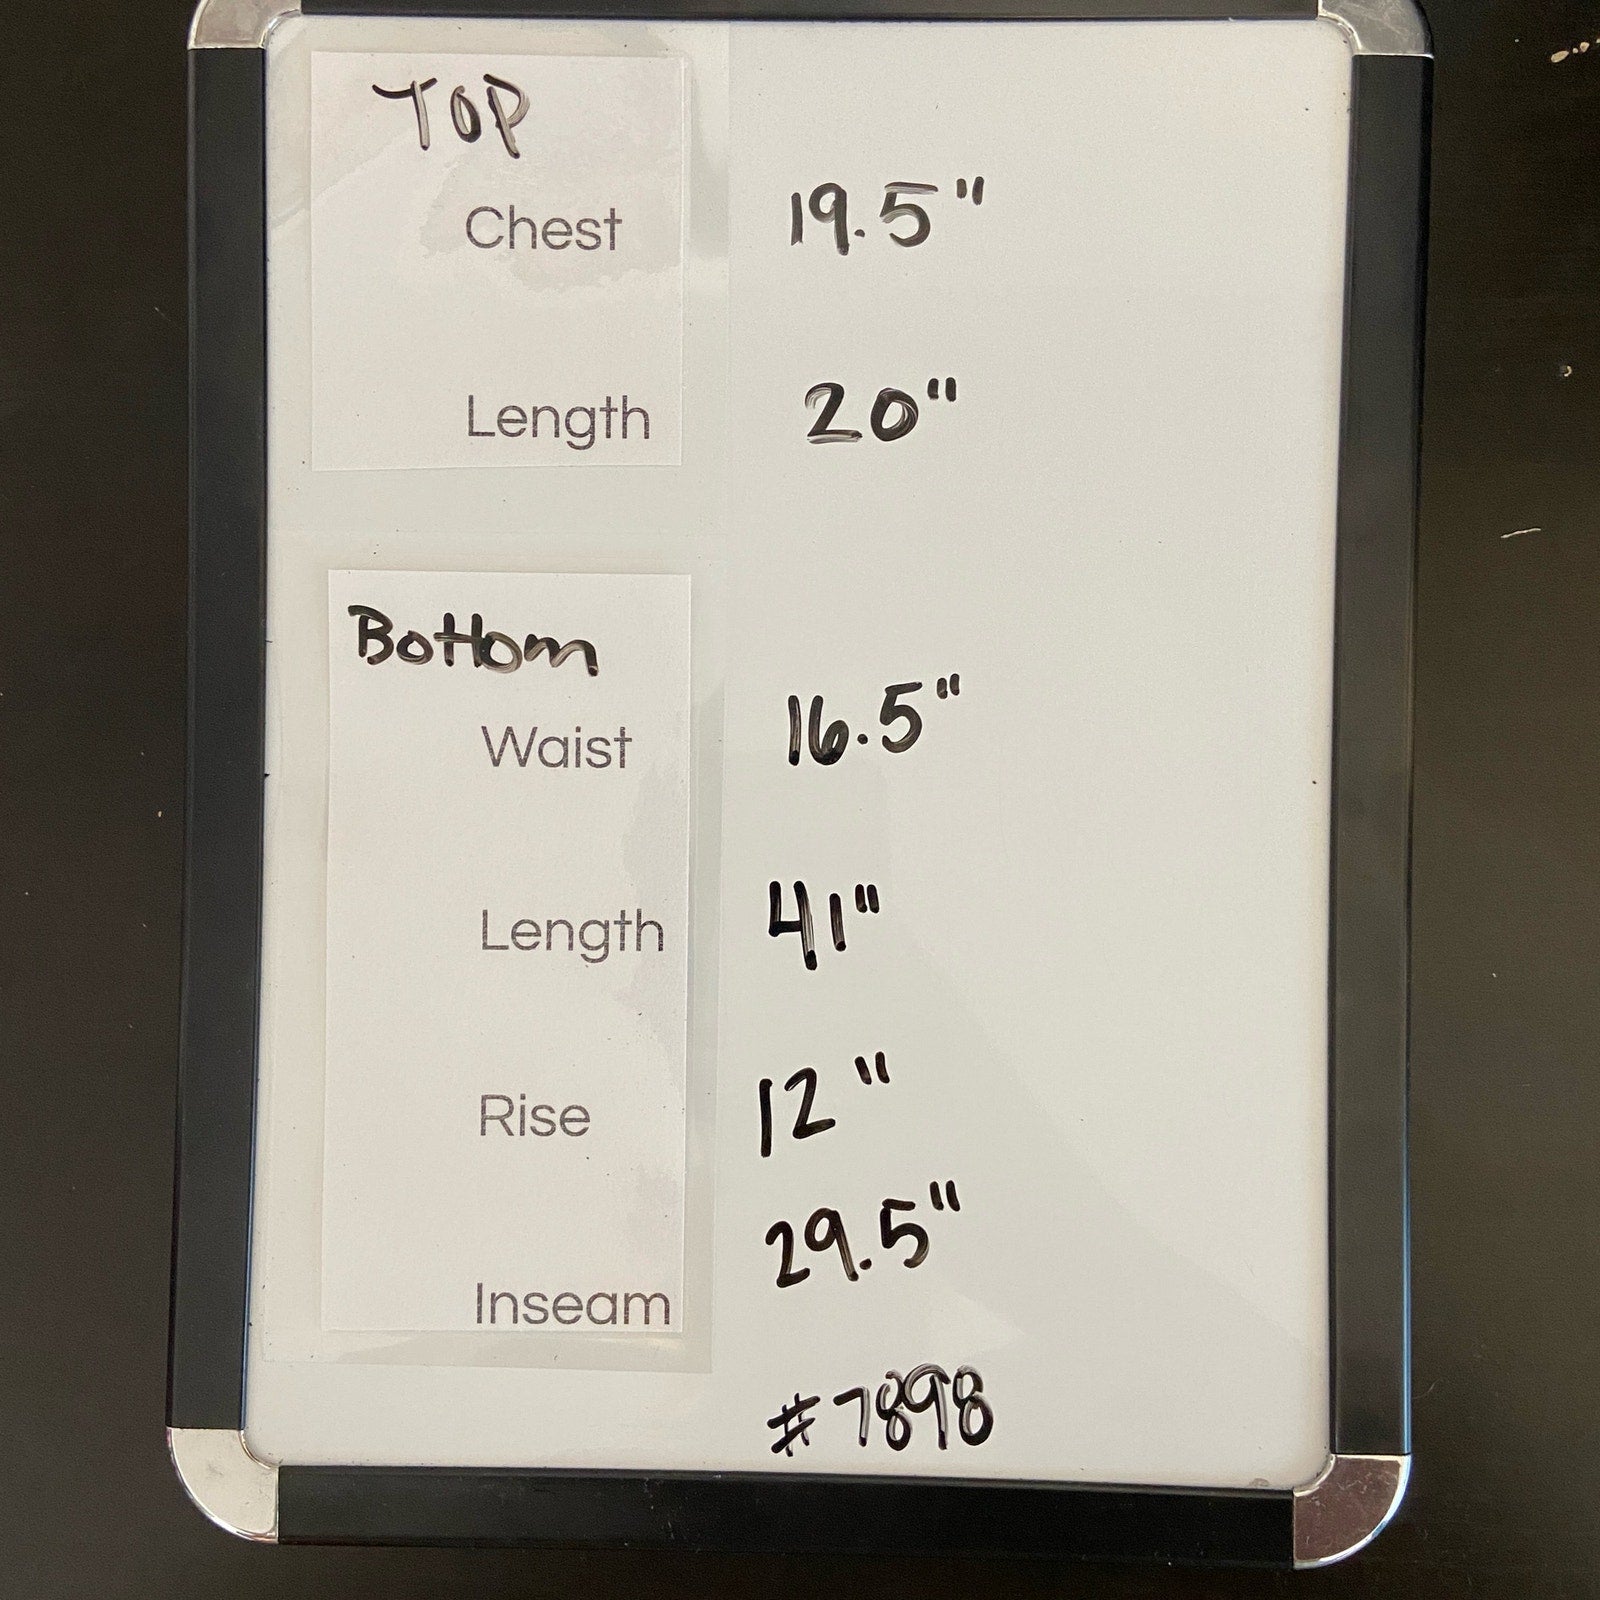 TOP
Chest 19.5"
Length 20"
Bottom
Waist 16.5"
Length 41"
Rise 12"
Inseam 29.5"
#7898